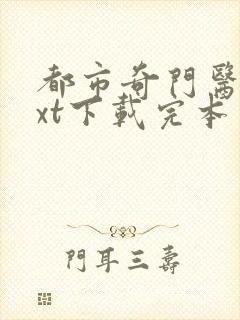 都市奇門醫
xt下載完本
門耳三壽